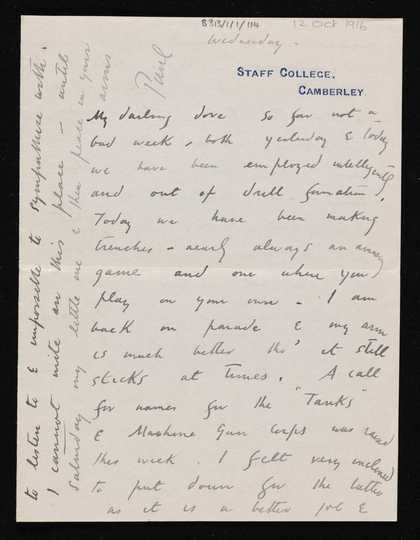 BBB/1/1/114
12 Oct 1916
Wednesday.
STAFF COLLEGE,
CAMBERLEY
My darling dove So far not a
bad week, both yesterday & today
we have been employed intelligently
and out of drill formation.
Today we have been making
trenches - nearly always an
game and one where you
play on your own - I am
back on parade & my arm
is much better tho' it still
sticks at times. A call
for names for the "Tanks"
& Machine Gun Corps was
this week. I felt very inclined
to put down for the latter
as it is a better job &
to listen to & impossible to sympathise with.
I cannot write in this place - until
Saturday my little one & then peace in your
arms
Paul